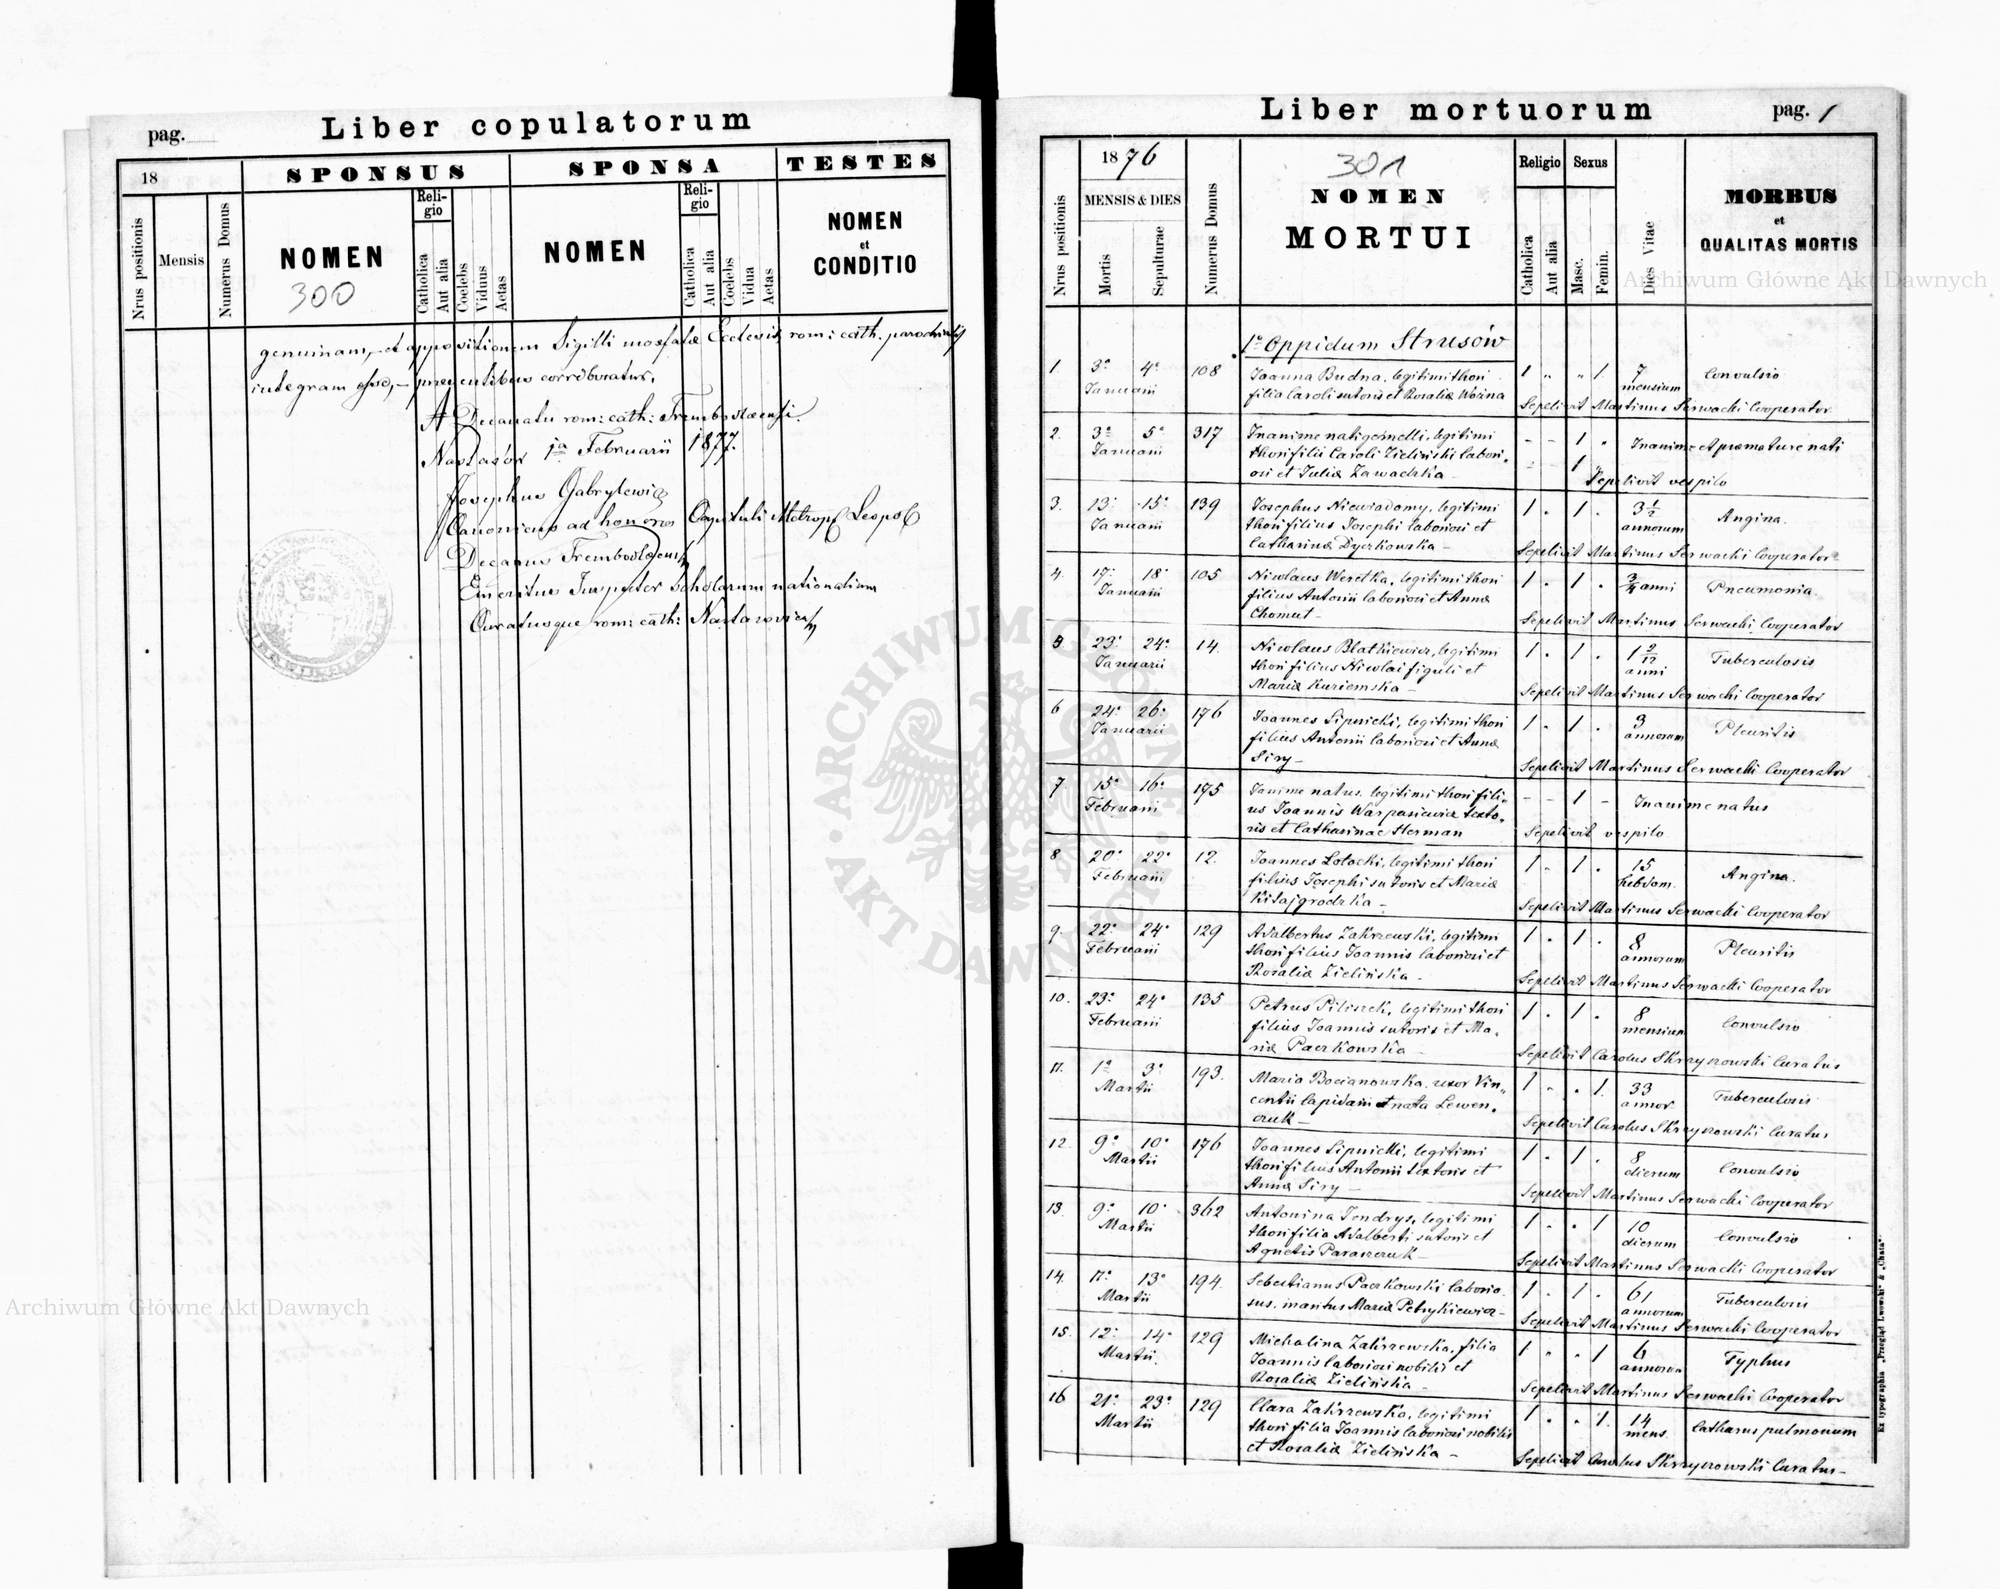 pag.
Liber copulatorum
18
SPONSUS
SPONSA
TESTES
Nrus positionis
Mensis
Numerus Domus
NOMEN
300
Religio
Catholica
Aut alia
Coelebs
Vidus
Aetas
NOMEN
Religio
Catholica
Aut alia
Coelebs
Vidua
Aetas
NOMEN
et
CONDITIO
genuinam, et appositionem Sigilli Ecclesiæ rom: cath. parochialis
integram esse, – præsentibus corroboratur.
A Decanatu rom: cath: Trembowlaensi
Nastasów 1a Februarii 1877.
Josephus Gabrylewicz
Canonicus ad honores Capituli Metrop Leopol
Decanus Trembowlaensis
Emeritus Inspector Scholarum nationalium
Curatusque rom: cath: Nastasoviensis
Liber mortuorum
pag. 1
Nrus positionis
1876
MENSIS & DIES
Mortis
Sepulturae
Numerus Domus
301
NOMEN
MORTUI
Religio
Catholica
Aut alia
Sexus
Masc.
Femin.
Dies Vitae
MORBUS
et
QUALITAS MORTIS
1º Oppidum Strusów
1 3º 4º 108 Joanna Budna, legitimi thori 1 " " 1 7 Convulsio
Januarii filia Caroli sutoris et Rosaliæ Woźna mensium
Sepelivit Martinus Serwacki Cooperator
2. 3º 5º 317 Inanime nati gemelli, legitimi - - 1 " Inanime et præmature nati
Januarii thori filii Caroli Zieliński labori-
osi et Juliæ Zawadzka - - 1 " Sepelivit vespilo
3. 13º 15º 139 Josephus Niewiadomy, legitimi 1 . 1 . 3 1/2 Angina.
Januarii thori filius Josephi laboriosi et annorum
Catharinæ Dyczkowska – Sepelivit Martinus Serwacki Cooperator
4. 17º 18º 105 Nicolaus Weretka, legitimi thori 1 . 1 . 3/4 anni Pneumonia.
Januarii filius Antonii laboriosi et Annæ
Chomut – Sepelivit Martinus Serwacki Cooperator
5 23º 24º 14. Nicolaus Blatkiewicz, legitimi 1 . 1 . 1 2/12 Tuberculosis
Januarii thori filius Nicolai figuli et anni
Mariæ Kuziemska – Sepelivit Martinus Serwacki Cooperator
6 24º 26º 176 Joannes Lipnicki, legitimi thori 1 . 1 . 3 Pleuritis
Januarii filius Antonii laboriosi et Annæ annorum
Siry – Sepelivit Martinus Serwacki Cooperator
7. 15º 16º 175 Inanime natus, legitimi thori fili- - - 1 - Inanime natus
Februarii us Joannis Warpasiewicz texto-
ris et Catharinae Herman Sepelivit vespilo
8 20º 22º 12. Joannes Łotocki, legitimi thori 1 . 1 . 15 Angina.
Februarii filius Josephi sutoris et Mariæ hebdom.
Kitajgrodzka – Sepelivit Martinus Serwacki Cooperator
9. 22º 24º 129 Adalbertus Zakrzewski, legitimi 1 . 1 . 8 Pleuritis
Februarii thori filius Joannis laboriosi et annorum
Rosaliæ Zielińska – Sepelivit Martinus Serwacki Cooperator
10. 23º 24º 135 Petrus Piliszek, legitimi thori 1 . 1 . 8 Convulsio
Februarii filius Joannis sutoris et Ma- mensium
riæ Paczkowska – Sepelivit Carolus Skrzyszowski Curatus
11. 1º 3º 193. Maria Bocianowska, uxor Vin- 1 . . 1. 33 Tuberculosis
Martii centii lapidarii et nata Lewen- annor.
czuk – Sepelivit Carolus Skrzyszowski Curatus
12. 9º 10º 176 Joannes Lipnicki, legitimi 1 . 1 . 8 Convulsio
Martii thori filius Antonii textoris et dierum
Annæ Siry – Sepelivit Martinus Serwacki Cooperator
13. 9º 10º 362 Antonina Jendrys, legitimi 1 . . 1 10 Convulsio
Martii thori filia Adalberti sutoris et dierum
Agnetis Paraszczuk – Sepelivit Martinus Serwacki Cooperator
14. 11º 13º 194. Sebastianus Paczkowski laborio- 1 . 1 . 61 Tuberculosis
Martii sus, maritus Mariæ Petrykiewicz – annorum
Sepelivit Martinus Serwacki Cooperator
15. 12º 14º 129 Michalina Zakrzewska, filia 1 . . 1 6 Typhus
Martii. Joannis laboriosi nobilis et annorum
Rosaliæ Zielińska – Sepelivit Martinus Serwacki Cooperator
16 21º 23º 129 Clara Zakrzewska, legitimi 1 . . 1. 14 Catharus pulmonum
Martii thori filia Joannis laboriosi nobilis mens.
et Rosaliæ Zielińska – Sepelivit Carolus Skrzyszowski Curatus –
Ex typographia „Przegląd Lwowski" & „Chata".
Archiwum Główne Akt Dawnych
ARCHIWUM GŁÓWNE
AKT DAWNYCH
Archiwum Główne Akt Dawnych